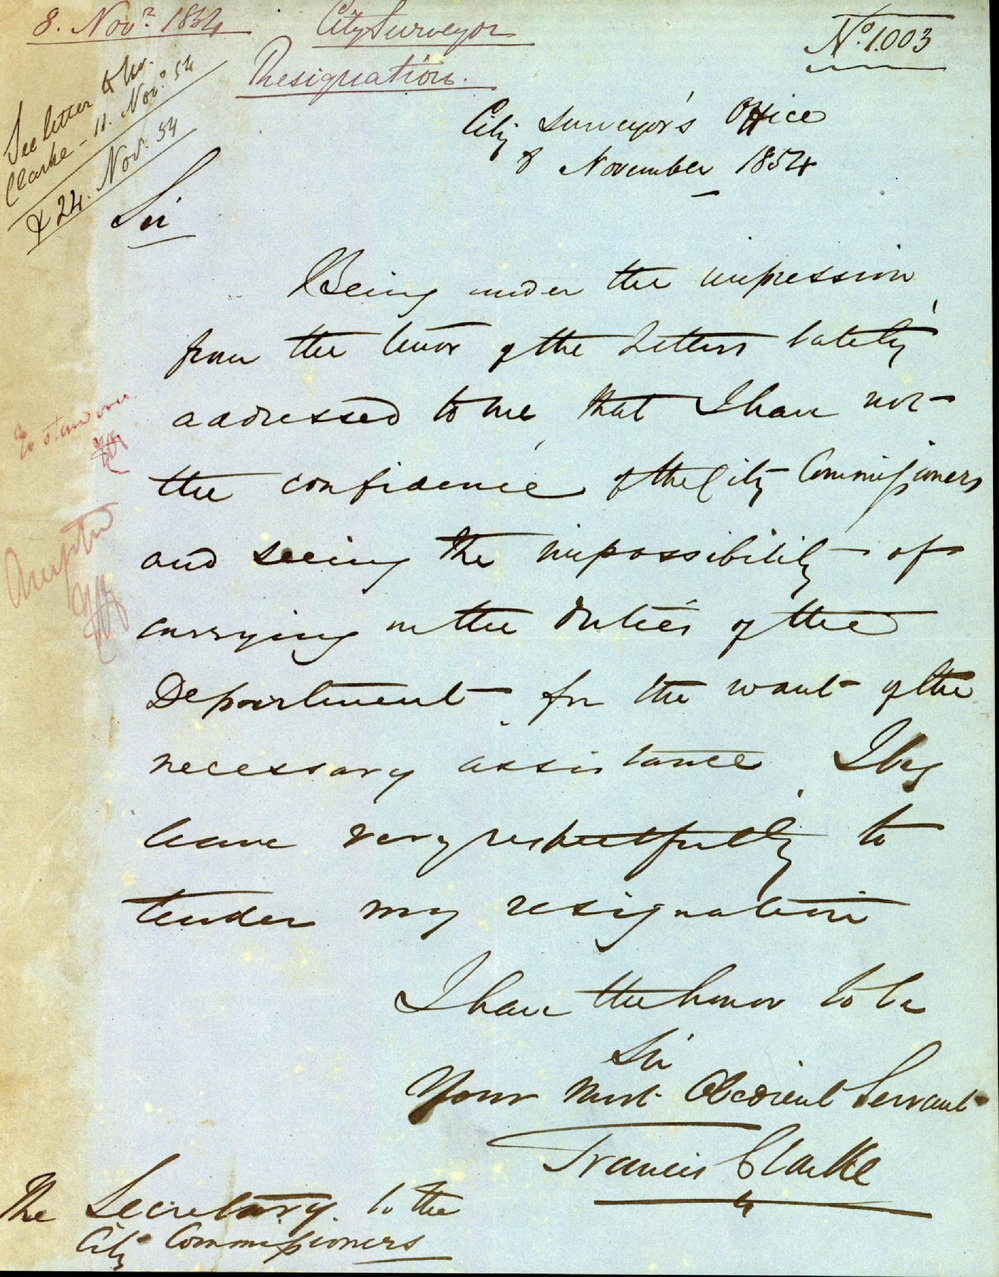 8. Novr. 1854
City Surveyor
Resignation.
No. 1003
See letter to Mr.
Clarke - 11. Nov. 54
& 24. Nov. 54
City Surveyor's Office
8 November 1854
Sir
Being under the impression
from the tenor of the Letters lately
addressed to me that I have not
the confidence of the City Commissioners
and seeing the impossibility of
carrying on the Duties of the
Department for the want of the
necessary assistance I beg
leave very respectfully to
tender my resignation
I have the honor to be
Sir
Your Most Obedient Servant
Francis Clarke
To stand over
Accepted
The Secretary to the
City Commissioners